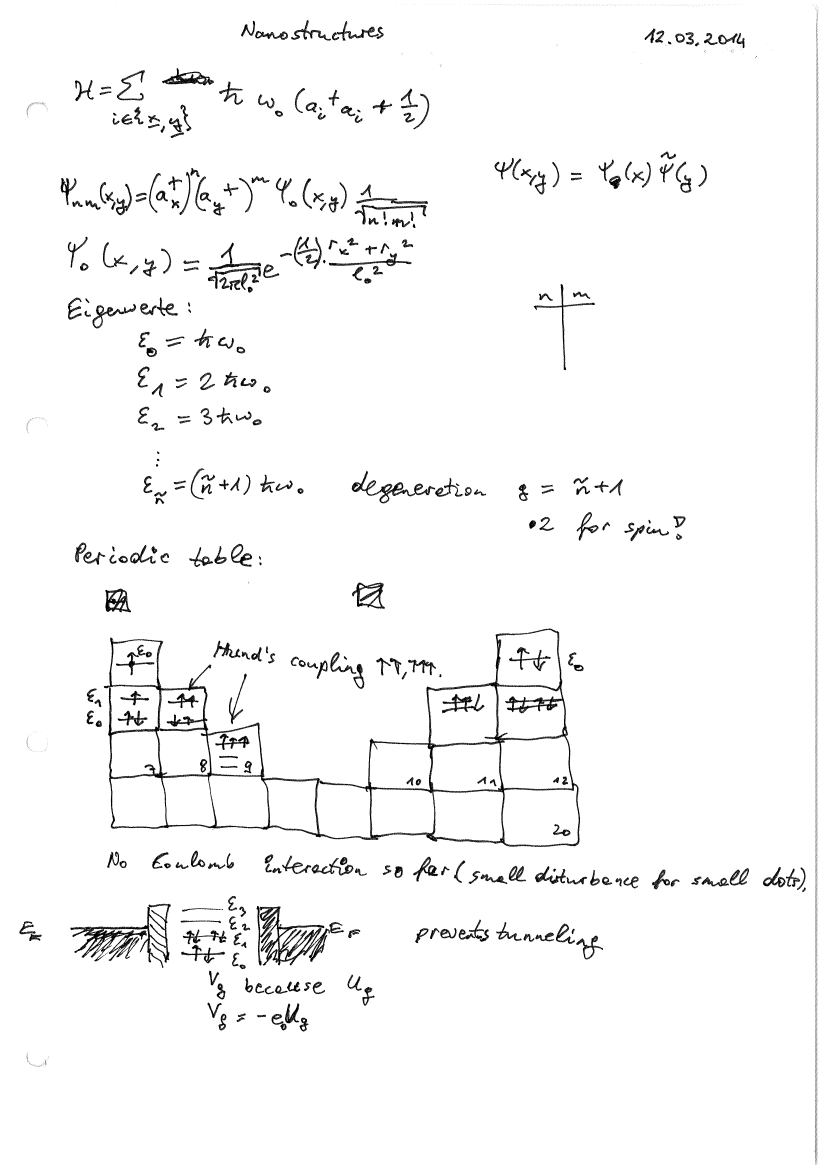 Nanostructures 12.03.2014
H = ∑ ħ ω₀ (aᵢ⁺aᵢ + 1/2)
i∈{x,y}
Ψ(x,y) = Ψ₀(x) Ψ̃(y)
Ψₙₘ(x,y) = (aₓ⁺)ⁿ (a_y⁺)ᵐ Ψ₀(x,y) 1/√(n!m!)
Ψ₀(x,y) = 1/√(2πl₀²) e^(-(1/2)·(rₓ² + r_y²)/l₀²)
Eigenwerte:
n | m
ε₀ = ħω₀
ε₁ = 2ħω₀
ε₂ = 3ħω₀
⋮
ε_ñ = (ñ+1) ħω₀ degeneretion g = ñ+1
•2 for spin!
Periodic table:
↑ ε₀
Hund's coupling ↑↑,↑↑↑.
↑↓ ε₀
ε₁ ↑
ε₀ ↑↓
↑↑
↓↑
↑↑↓
↑↓ ↑↓
7 8
↑↑↑
9
10 11 12
20
No Coulomb interaction so far (small disturbance for small dots),
ε₃
ε₂
E_F ↑↓ ↑↓ ε₁ E_F prevents tunneling
↑↓ ε₀
V_g because U_g
V_g = -e₀U_g